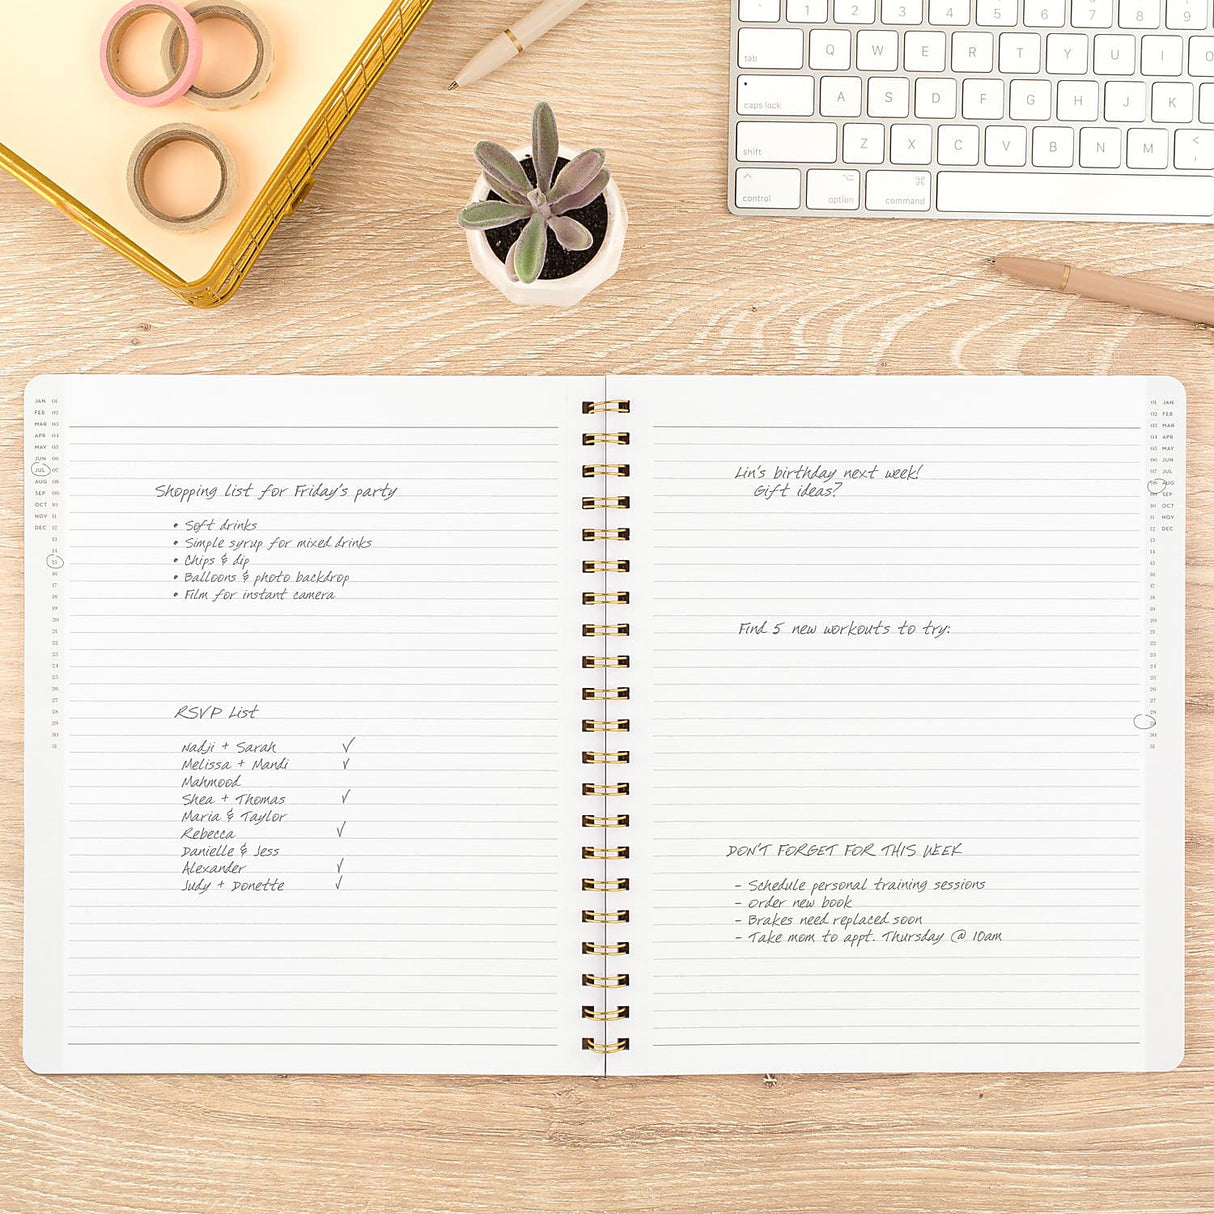 1 2 3 4 5 6 7 8 9
tab Q W E R T Y U I O
caps lock A S D F G H J K
shift Z X C V B N M < ,
control option command
JAN 01
FEB 02
MAR 03
APR 04
MAY 05
JUN 06
JUL 07
AUG 08
SEP 09
OCT 10
NOV 11
DEC 12
13
14
15
16
17
18
19
20
21
22
23
24
25
26
27
28
29
30
31
Shopping list for Friday's party
• Soft drinks
• Simple syrup for mixed drinks
• Chips & dip
• Balloons & photo backdrop
• Film for instant camera
RSVP List
Nadji + Sarah ✓
Melissa + Mandi ✓
Mahmood
Shea + Thomas ✓
Maria & Taylor
Rebecca ✓
Danielle & Jess
Alexander ✓
Judy + Donette ✓
Lin's birthday next week!
Gift ideas?
Find 5 new workouts to try:
DON'T FORGET FOR THIS WEEK
- Schedule personal training sessions
- Order new book
- Brakes need replaced soon
- Take mom to appt. Thursday @ 10am
01 JAN
02 FEB
03 MAR
04 APR
05 MAY
06 JUN
07 JUL
08 AUG
09 SEP
10 OCT
11 NOV
12 DEC
13
14
15
16
17
18
19
20
21
22
23
24
25
26
27
28
29
30
31